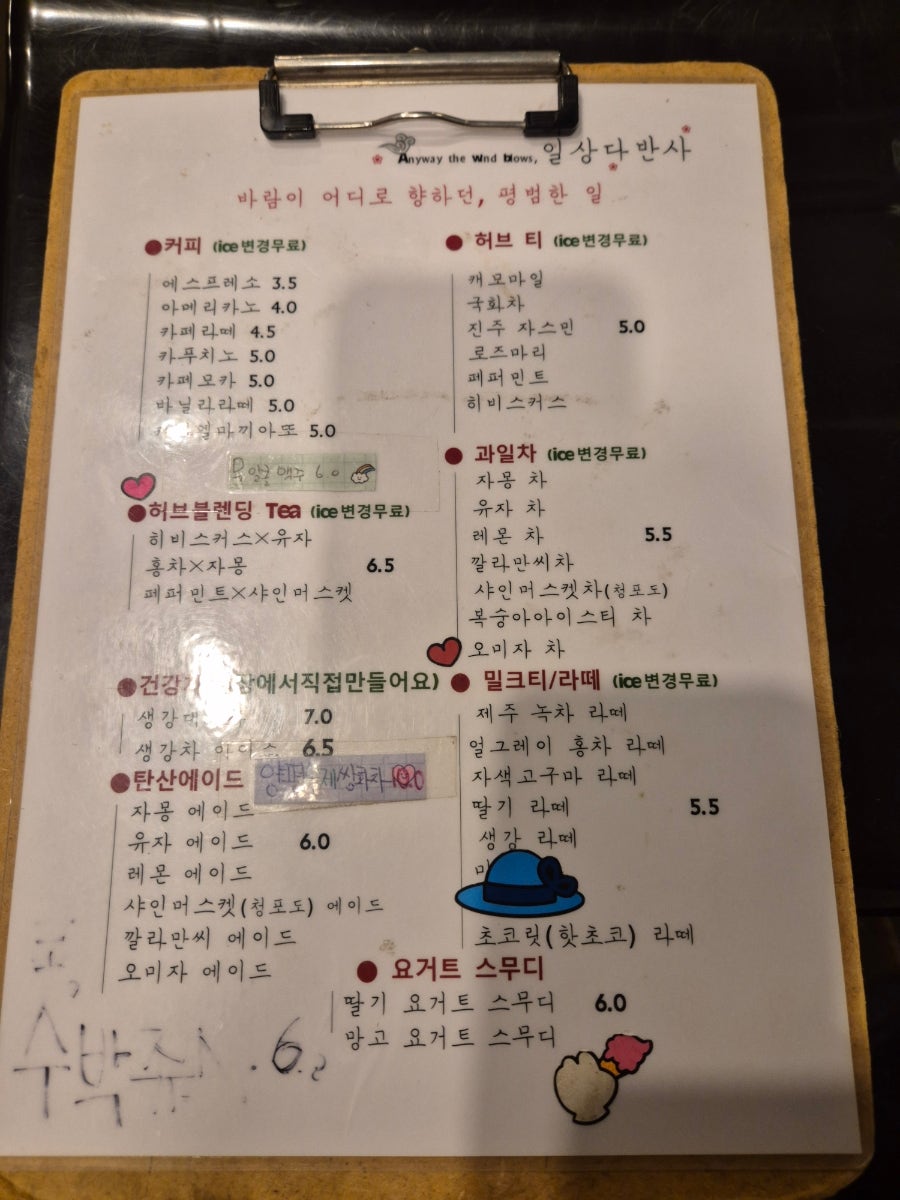 Anyway the wind blows, 일상다반사
바람이 어디로 향하던, 평범한 일
●커피 (ice변경무료)
에스프레소 3.5
아메리카노 4.0
카페라떼 4.5
카푸치노 5.0
카페모카 5.0
바닐라라떼 5.0
마끼아또 5.0
맥주 6.0
●허브블렌딩 Tea (ice변경무료)
히비스커스×유자
홍차×자몽 6.5
페퍼민트×샤인머스켓
●건강 에서직접만들어요)
7.0
생강차 6.5
쌍화차 10.0
●탄산에이드
자몽 에이드
유자 에이드 6.0
레몬 에이드
샤인머스켓(청포도) 에이드
깔라만씨 에이드
오미자 에이드
● 허브 티 (ice변경무료)
캐모마일
국화차
진주 자스민 5.0
로즈마리
페퍼민트
히비스커스
● 과일차 (ice변경무료)
자몽 차
유자 차
레몬 차 5.5
깔라만씨차
샤인머스켓차(청포도)
복숭아아이스티 차
오미자 차
● 밀크티/라떼 (ice변경무료)
제주 녹차 라떼
얼그레이 홍차 라떼
자색고구마 라떼
딸기 라떼 5.5
생강 라떼
초코릿(핫초코) 라떼
● 요거트 스무디
딸기 요거트 스무디 6.0
망고 요거트 스무디
수박쥬스 6.5